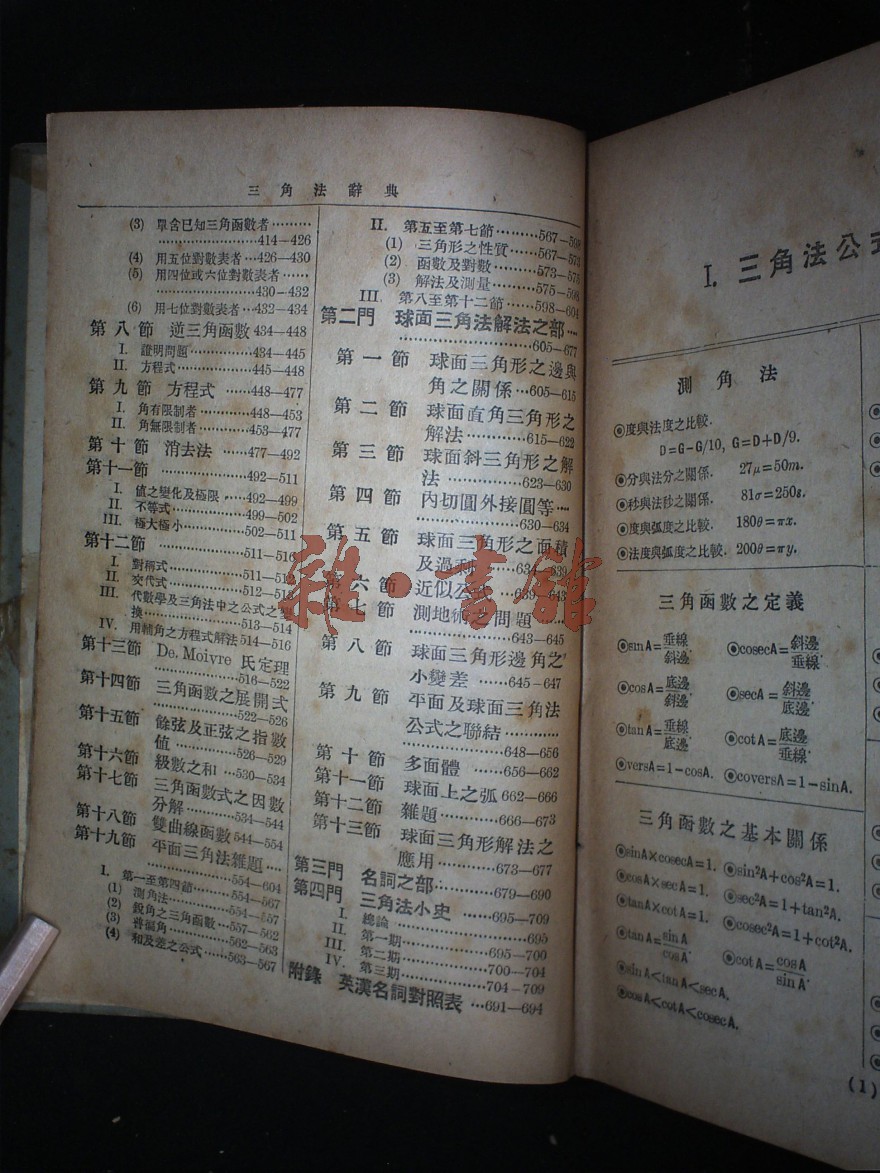 三角法辭典
(3) 單含已知三角函數者………
…………………414—426
(4) 用五位對數表者…426—430
(5) 用四位或六位對數表者……
…………………430—432
(6) 用七位對數表者…432—434
第八節 逆三角函數 434—448
I. 證明問題…………434—445
II. 方程式……………445—448
第九節 方程式……448—477
I. 角有限制者…………448—453
II. 角無限制者…………453—477
第十節 消去法……477—492
第十一節……………492—511
I. 值之變化及極限…492—499
II. 不等式……………499—502
III. 極大極小…………502—511
第十二節……………511—516
I. 對稱式……………511—512
II. 交代式……………512—513
III. 代數學及三角法中之公式之變
換……………513—514
IV. 用輔角之方程式解法514—516
第十三節 De. Moivre 氏定理
……………516—522
第十四節 三角函數之展開式
……………522—526
第十五節 餘弦及正弦之指數
值……………526—529
第十六節 級數之和…530—534
第十七節 三角函數式之因數
分解…………534—544
第十八節 雙曲線函數544—554
第十九節 平面三角法雜題……
……………554—604
I. 第一至第四節………554—567
(1) 測角法…………554—557
(2) 銳角之三角函數…557—562
(3) 普徧角…………562—563
(4) 和及差之公式……563—567
II. 第五至第七節………567—598
(1) 三角形之性質……567—573
(2) 函數及對數………573—575
(3) 解法及測量………575—598
III. 第八至第十二節……598—604
第二門 球面三角法解法之部…
……………605—677
第一節 球面三角形之邊與
角之關係…605—615
第二節 球面直角三角形之
解法…………615—622
第三節 球面斜三角形之解
法……………623—630
第四節 內切圓外接圓等…
……………630—634
第五節 球面三角形之面積
及過剩……634—639
第六節 近似公式…639—643
第七節 測地術之問題……
……………643—645
第八節 球面三角形邊角之
小變差……645—647
第九節 平面及球面三角法
公式之聯結…………
……………648—656
第十節 多面體……656—662
第十一節 球面上之弧 662—666
第十二節 雜題………666—673
第十三節 球面三角形解法之
應用…………673—677
第三門 名詞之部………679—690
第四門 三角法小史……695—709
I. 總論……………695
II. 第一期…………695—700
III. 第二期…………700—704
IV. 第三期…………704—709
附錄 英漢名詞對照表…691—694
雜·書館
I. 三角法公
測角法
◉度與法度之比較.
D=G−G/10, G=D+D/9.
◉分與法分之關係. 27μ=50m.
◉秒與法秒之關係. 81σ=250s.
◉度與弧度之比較. 180θ=πx.
◉法度與弧度之比較. 200θ=πy.
三角函數之定義
◉sinA=垂線/斜邊. ◉cosecA=斜邊/垂線.
◉cosA=底邊/斜邊. ◉secA=斜邊/底邊.
◉tanA=垂線/底邊. ◉cotA=底邊/垂線.
◉versA=1−cosA. ◉coversA=1−sinA.
三角函數之基本關係
◉sinA×cosecA=1. ◉sin²A+cos²A=1.
◉cosA×secA=1. ◉sec²A=1+tan²A.
◉tanA×cotA=1. ◉cosec²A=1+cot²A.
◉tanA=sinA/cosA. ◉cotA=cosA/sinA.
◉sinA<tanA<secA.
◉cosA<cotA<cosecA.
(1)